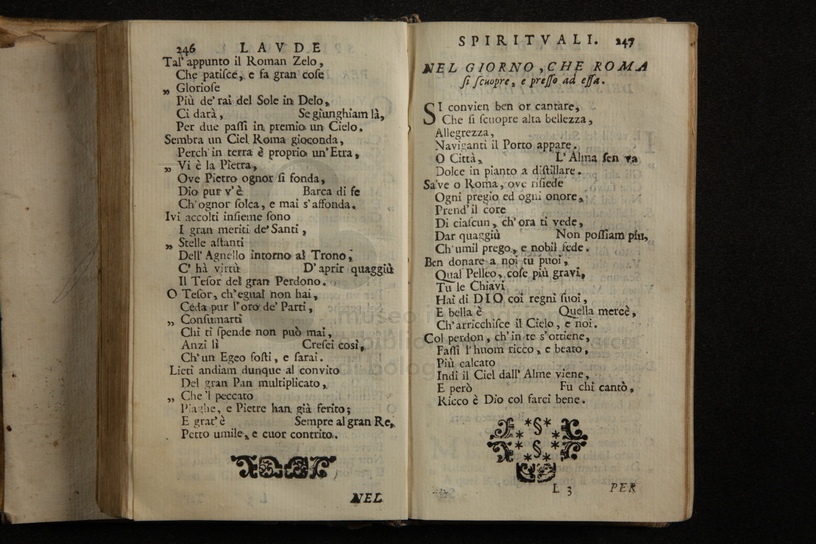 246 LAVDE
Tal' appunto il Roman Zelo,
Che patiſce, e fa gran coſe
„ Glorioſe
Più de' rai del Sole in Delo,
Ci darà, Se giunghiam là,
Per due paſſi in premio un Cielo.
Sembra un Ciel Roma gioconda,
Perch' in terra è proprio un' Etra,
„ Vi è la Pietra,
Ove Pietro ognor ſi fonda,
Dio pur v'è Barca di fe
Ch' ognor ſolca, e mai s'affonda.
Ivi accolti inſieme ſono
I gran meriti de' Santi,
„ Stelle aſtanti
Dell' Agnello intorno al Trono,
C' hà virtù D' aprir quaggiù
Il Teſor del gran Perdono.
O Teſor, ch' egual non hai,
Ceda pur l'oro de' Parti,
„ Conſumarti
Chi ti ſpende non può mai,
Anzi lì Creſci così,
Ch' un Egeo foſti, e ſarai.
Lieti andiam dunque al convito
Del gran Pan multiplicato,
„ Che 'l peccato
Piaghe, e Pietre han già ferito;
E grat' è Sempre al gran Re,
Petto umile, e cuor contrito.
NEL
SPIRITVALI. 247
NEL GIORNO, CHE ROMA
ſi ſcuopre, e preſſo ad eſſa.
SI convien ben or cantare,
Che ſi ſcuopre alta bellezza,
Allegrezza,
Naviganti il Porto appare.
O Città, L' Alma ſen va
Dolce in pianto a diſtillare.
Salve o Roma, ove riſiede
Ogni pregio ed ogni onore,
Prend' il core
Di ciaſcun, ch' ora ti vede,
Dar quaggiù Non poſſiam più,
Ch' umil prego, e nobil ſede.
Ben donare a noi tu puoi,
Qual Pelleo, coſe più gravi,
Tu le Chiavi
Hai di DIO coi regni ſuoi,
E bella è Quella mercè,
Ch' arricchiſce il Cielo, e noi.
Col perdon, ch' in te s'ottiene,
Faſſi l' huom ricco, e beato,
Più calcato
Indi il Ciel dall' Alme viene,
E però Fu chi cantò,
Ricco è Dio col farci bene.
L 3 PER